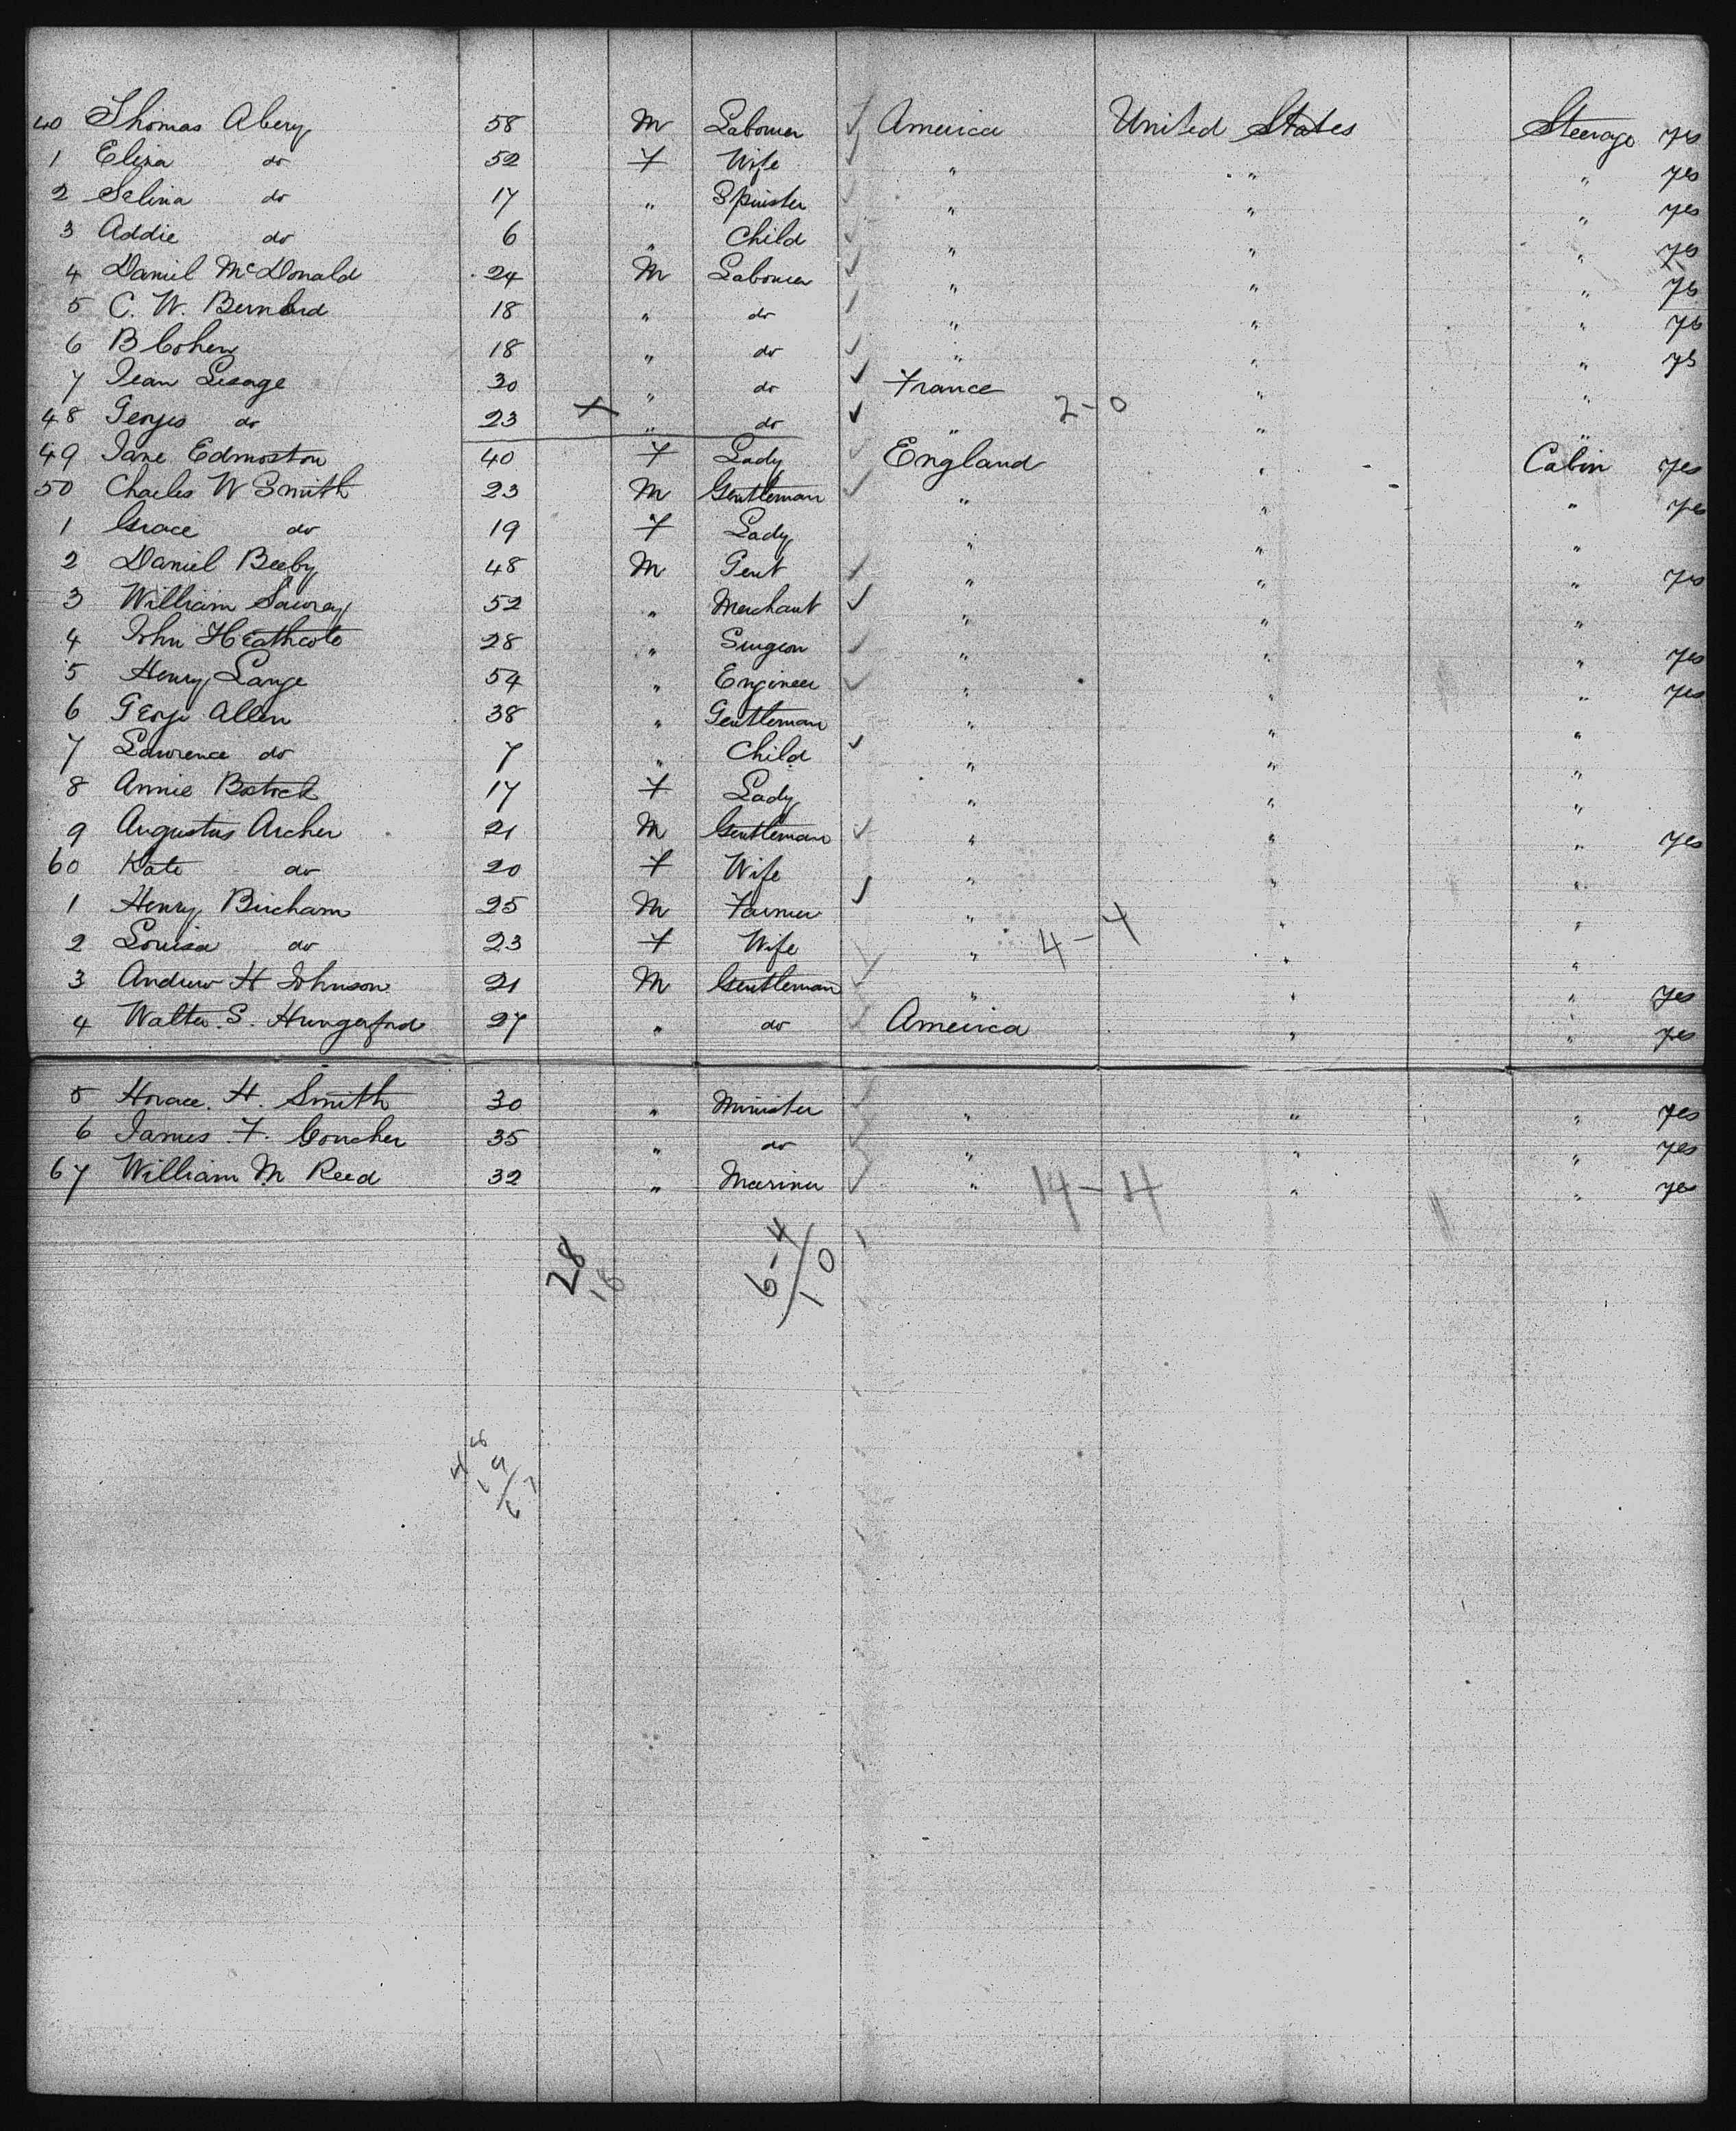 40 Thomas Abery 58 M Labourer ✓ America United States Steerage yes
1 Eliza do 52 F Wife ✓ " " " yes
2 Selina do 17 " Spinster ✓ " " " yes
3 Addie do 6 " Child ✓ " " " yes
4 Daniel McDonald 24 M Labourer ✓ " " " yes
5 C. W. Bernard 18 " do ✓ " " " yes
6 B Cohen 18 " do ✓ " " " yes
7 Jean Lesage 30 " do ✓ France " "
48 Georges do 23 X " do ✓ " 2-0 " "
49 Jane Edmoston 40 F Lady ✓ England " Cabin yes
50 Charles W Smith 23 M Gentleman ✓ " " " yes
1 Grace do 19 F Lady " " "
2 Daniel Beeby 48 M Gent ✓ " " " yes
3 William Sawrey 52 " Merchant ✓ " " "
4 John Heathcote 28 " Surgeon ✓ " " " yes
5 Henry Lange 54 " Engineer ✓ " " " yes
6 George Allen 38 " Gentleman " " "
7 Lawrence do 7 " Child ✓ " " "
8 Annie Bostock 17 F Lady " " "
9 Augustus Archer 21 M Gentleman ✓ " " " yes
60 Kate do 20 F Wife " " "
1 Henry Bircham 25 M Farmer ✓ " " "
2 Louisa do 23 F Wife ✓ " 4-4 " "
3 Andrew H Johnson 21 M Gentleman ✓ " " " yes
4 Walter. S. Hungerford 27 " do ✓ America " " yes
5 Horace. H. Smith 30 " Minister ✓ " " " yes
6 James. F. Goucher 35 " do ✓ " " " yes
67 William M Reed 32 " Mariner ✓ " 14-4 " " yes
28
18
6-4
10
48
19
67